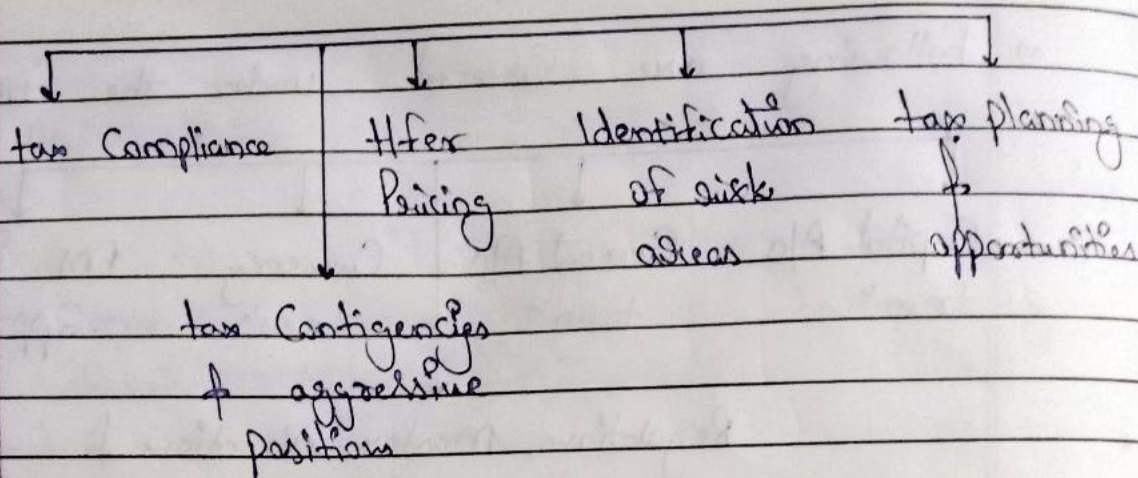 tax Compliance
tfer
Pricing
Identification
of risk
areas
tax planning
&
opportunities
tax Contigencies
& aggressive
positions